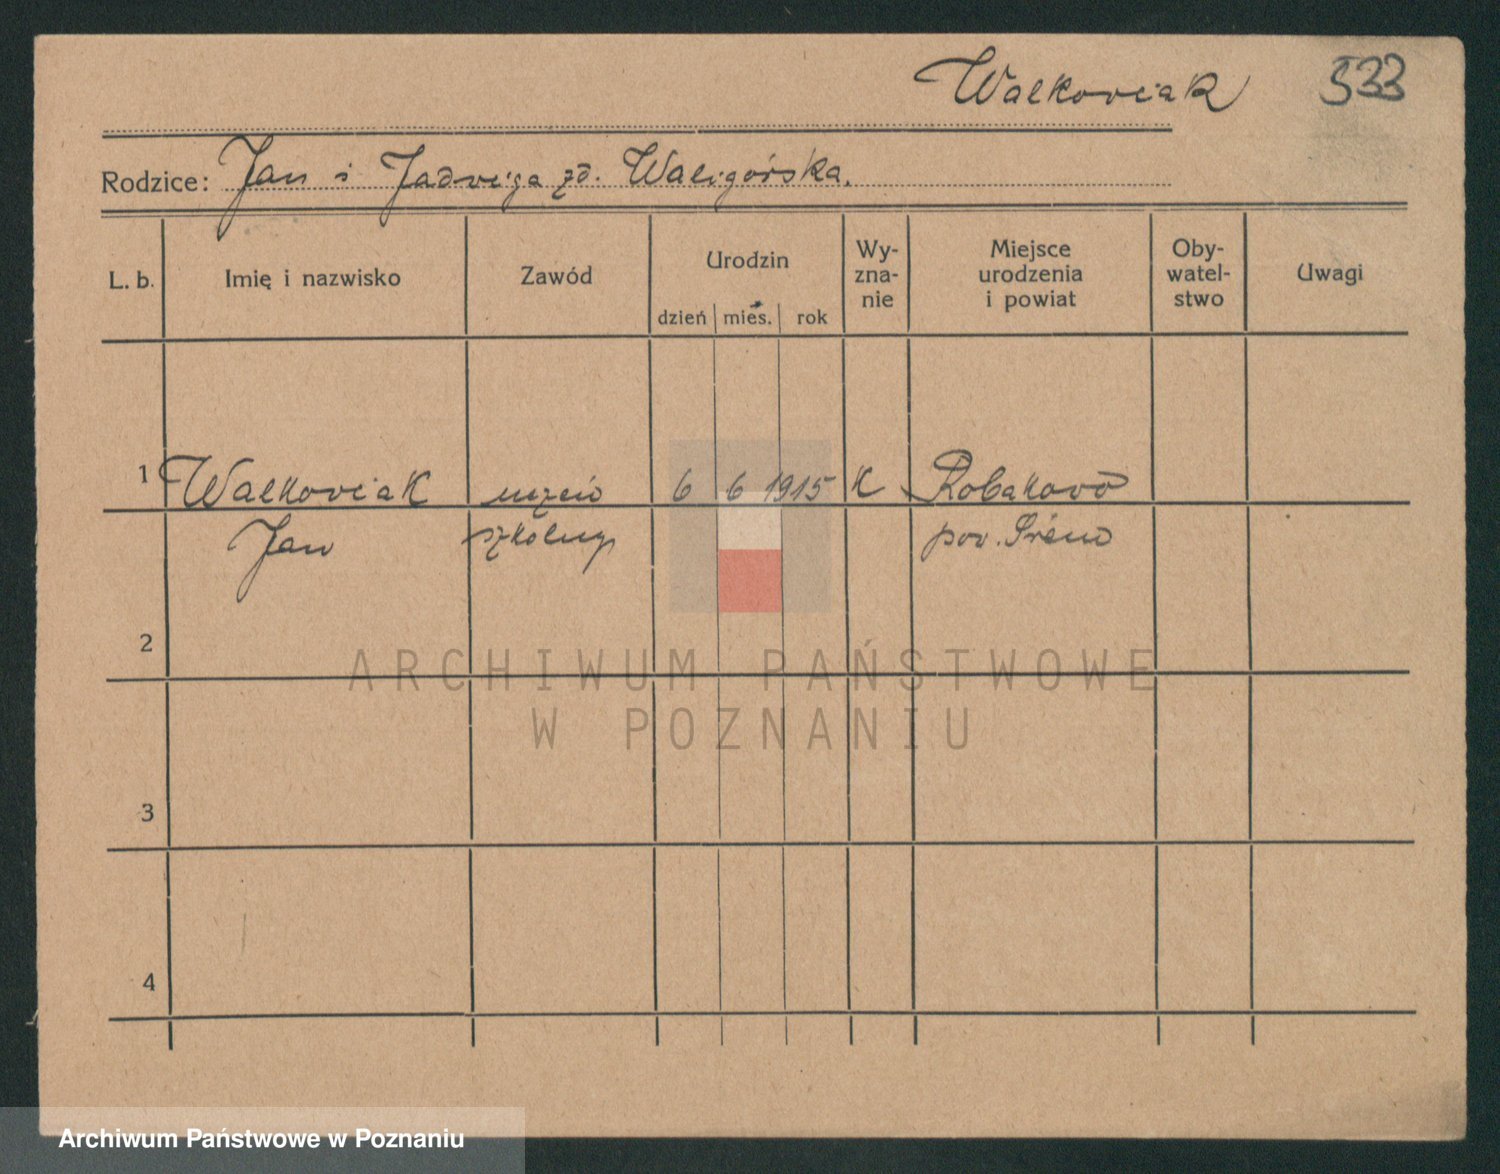 Walkowiak 533
Rodzice: Jan i Jadwiga zd. Waligórska.
L. b. Imię i nazwisko Zawód Urodzin dzień mieś. rok Wy-zna-nie Miejsce urodzenia i powiat Oby-watel-stwo Uwagi
1 Walkowiak uczeń 6 6 1915 K Robakowo
Jan szkolny pow. Śrem
2
ARCHIWUM PAŃSTWOWE
W POZNANIU
3
4
Archiwum Państwowe w Poznaniu